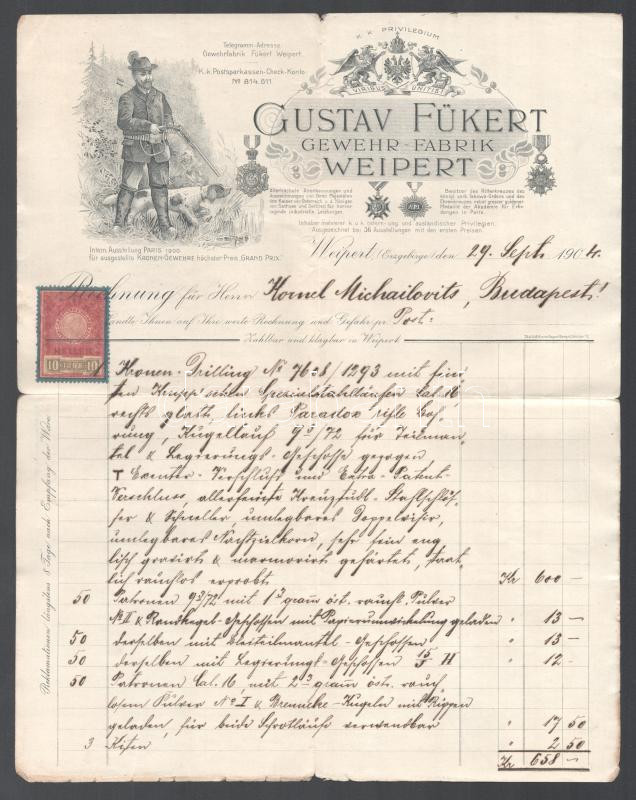 K. K. PRIVILEGIUM
Telegramm-Adresse
Gewehrfabrik Fükert Weipert.
K. k. Postsparkassen-Check-Konto
№ 814.611
VIRIBUS UNITIS
GUSTAV FÜKERT
GEWEHR-FABRIK
WEIPERT
Allerhöchste Anerkennungen und
Auszeichnungen von Ihren Majestäten
dem Kaiser von Österreich u. d. Königen
von Sachsen und Serbien für hervor-
ragende industrielle Leistungen.
Besitzer des Ritterkreuzes des
königl. serb. Takowa-Ordens und des
Ehrenkreuzes nebst grosser goldener
Medaille der Akademie für Erfin-
dungen in Paris.
Inhaber mehrerer k. u. k. österr.-ung. und ausländischer Privilegien.
Ausgezeichnet bei 36 Ausstellungen mit den ersten Preisen.
Intern. Ausstellung PARIS 1900
für ausgestellte KRONEN-GEWEHRE höchster Preis „GRAND PRIX.“
Weipert (Erzgebirge) den 29. Sept. 1904.
Rechnung für Herrn Kornel Michailovits, Budapest!
sandte Ihnen auf Ihre werte Rechnung und Gefahr pr. Post:
Zahlbar und klagbar in Weipert
HELLER
10 1898 10
Reklamationen längstens 8 Tage nach Empfang der Ware
1 Kronen-Drilling № 7628/1293 mit fein-
sten Krupp'schen Spezialstahlläufen Cal. 16,
rechts glatt, links Paradox rifle Boh-
rung, Kugellauf 9,3/72 für Teilman-
tel & Legierungs-Geschosse gezogen
T Exenter-Verschluss und Extra-Patent-
Verschluss, allerfeinste Kreuznadl-Stahlschlös-
ser & Schneller, umlegbares Doppelvisir,
umlegbares Nachtzielkorn, sehr fein eng-
lisch gravirt & marmorirt gehärtet, staat-
lich rauchlos erprobt Kr 600 —
50 Patronen 9,3/72 mit 1,3 gram öst. rauchl. Pulver
№ II & Rundkugel-Geschossen mit Papierumwickelung geladen " 13 —
50 derselben mit Dreiteilmantel-Geschossen " 13 —
50 derselben mit Legierungs-Geschossen 15/5 H " 12 —
50 Patronen Cal. 16, mit 2,3 gram öst. rauch-
losem Pulver № I & Brenneke-Kugeln mit Rippen
geladen, für beide Schrotläufe verwendbar " 17 50
3 Kisten " 2 50
Kr 658 —